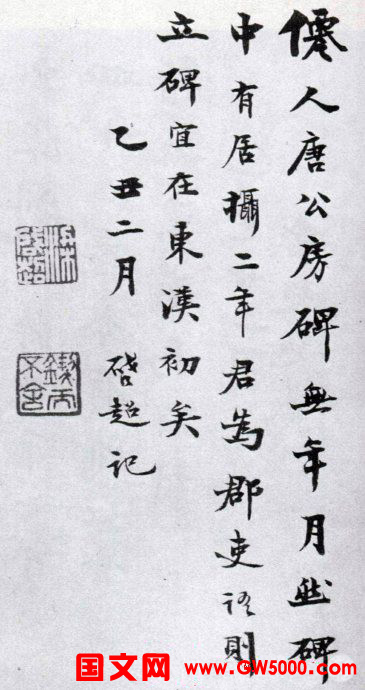 僊人唐公房碑無年月然碑
中有居攝二年君為郡吏語則
立碑宜在東漢初矣
乙丑二月 啓超記
鍥而不舍
国文网 www.GW5000.com